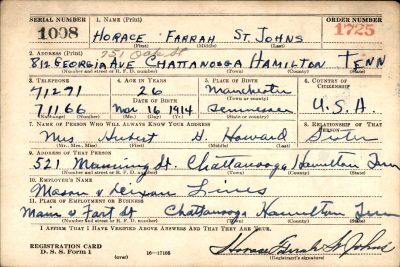 SERIAL NUMBER 1. NAME (Print) ORDER NUMBER
1098 HORACE FARRAH ST. JOHNS 1725
(First) (Middle) (Last)
2. ADDRESS (Print) 751 Oak St
812 GEORGIA AVE CHATTANOOGA HAMILTON TENN
(Number and street or R. F. D. number) (Town) (County) (State)
3. TELEPHONE 4. AGE IN YEARS 5. PLACE OF BIRTH 6. COUNTRY OF CITIZENSHIP
71271 26 Manchester
DATE OF BIRTH (Town or county)
71166 Nov. 16, 1914 Tennessee U.S.A.
(Exchange) (Number) (Mo.) (Day) (Yr.) (State or country)
7. NAME OF PERSON WHO WILL ALWAYS KNOW YOUR ADDRESS 8. RELATIONSHIP OF THAT PERSON
Mrs Hubert H. Howard Sister
(Mr., Mrs., Miss) (First) (Middle) (Last)
9. ADDRESS OF THAT PERSON
521 Manning St. Chattanooga Hamilton Tenn
(Number and street or R. F. D. number) (Town) (County) (State)
10. EMPLOYER'S NAME
Mason & Dixon Lines
11. PLACE OF EMPLOYMENT OR BUSINESS
Main & Fort St Chattanooga Hamilton Tenn
(Number and street or R. F. D. number) (Town) (County) (State)
I AFFIRM THAT I HAVE VERIFIED ABOVE ANSWERS AND THAT THEY ARE TRUE.
REGISTRATION CARD
D. S. S. Form 1 16—17105 Horace Farrah St Johns
(Registrant's signature)